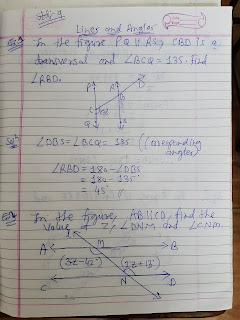 Lines and Angles
In the figure PQ || RS, CBD is a
transversal and ∠BCQ = 135. Find
∠RBD.
P R D
B
C
135
Q S
∠DBS = ∠BCQ = 135 (Corresponding
angles)
∠RBD = 180 - ∠DBS
= 180 - 135
= 45
In the figure, AB || CD, find the
value of Z, ∠DNM and ∠CNM
A M B
(3z-42°) (2z+13°)
C N D